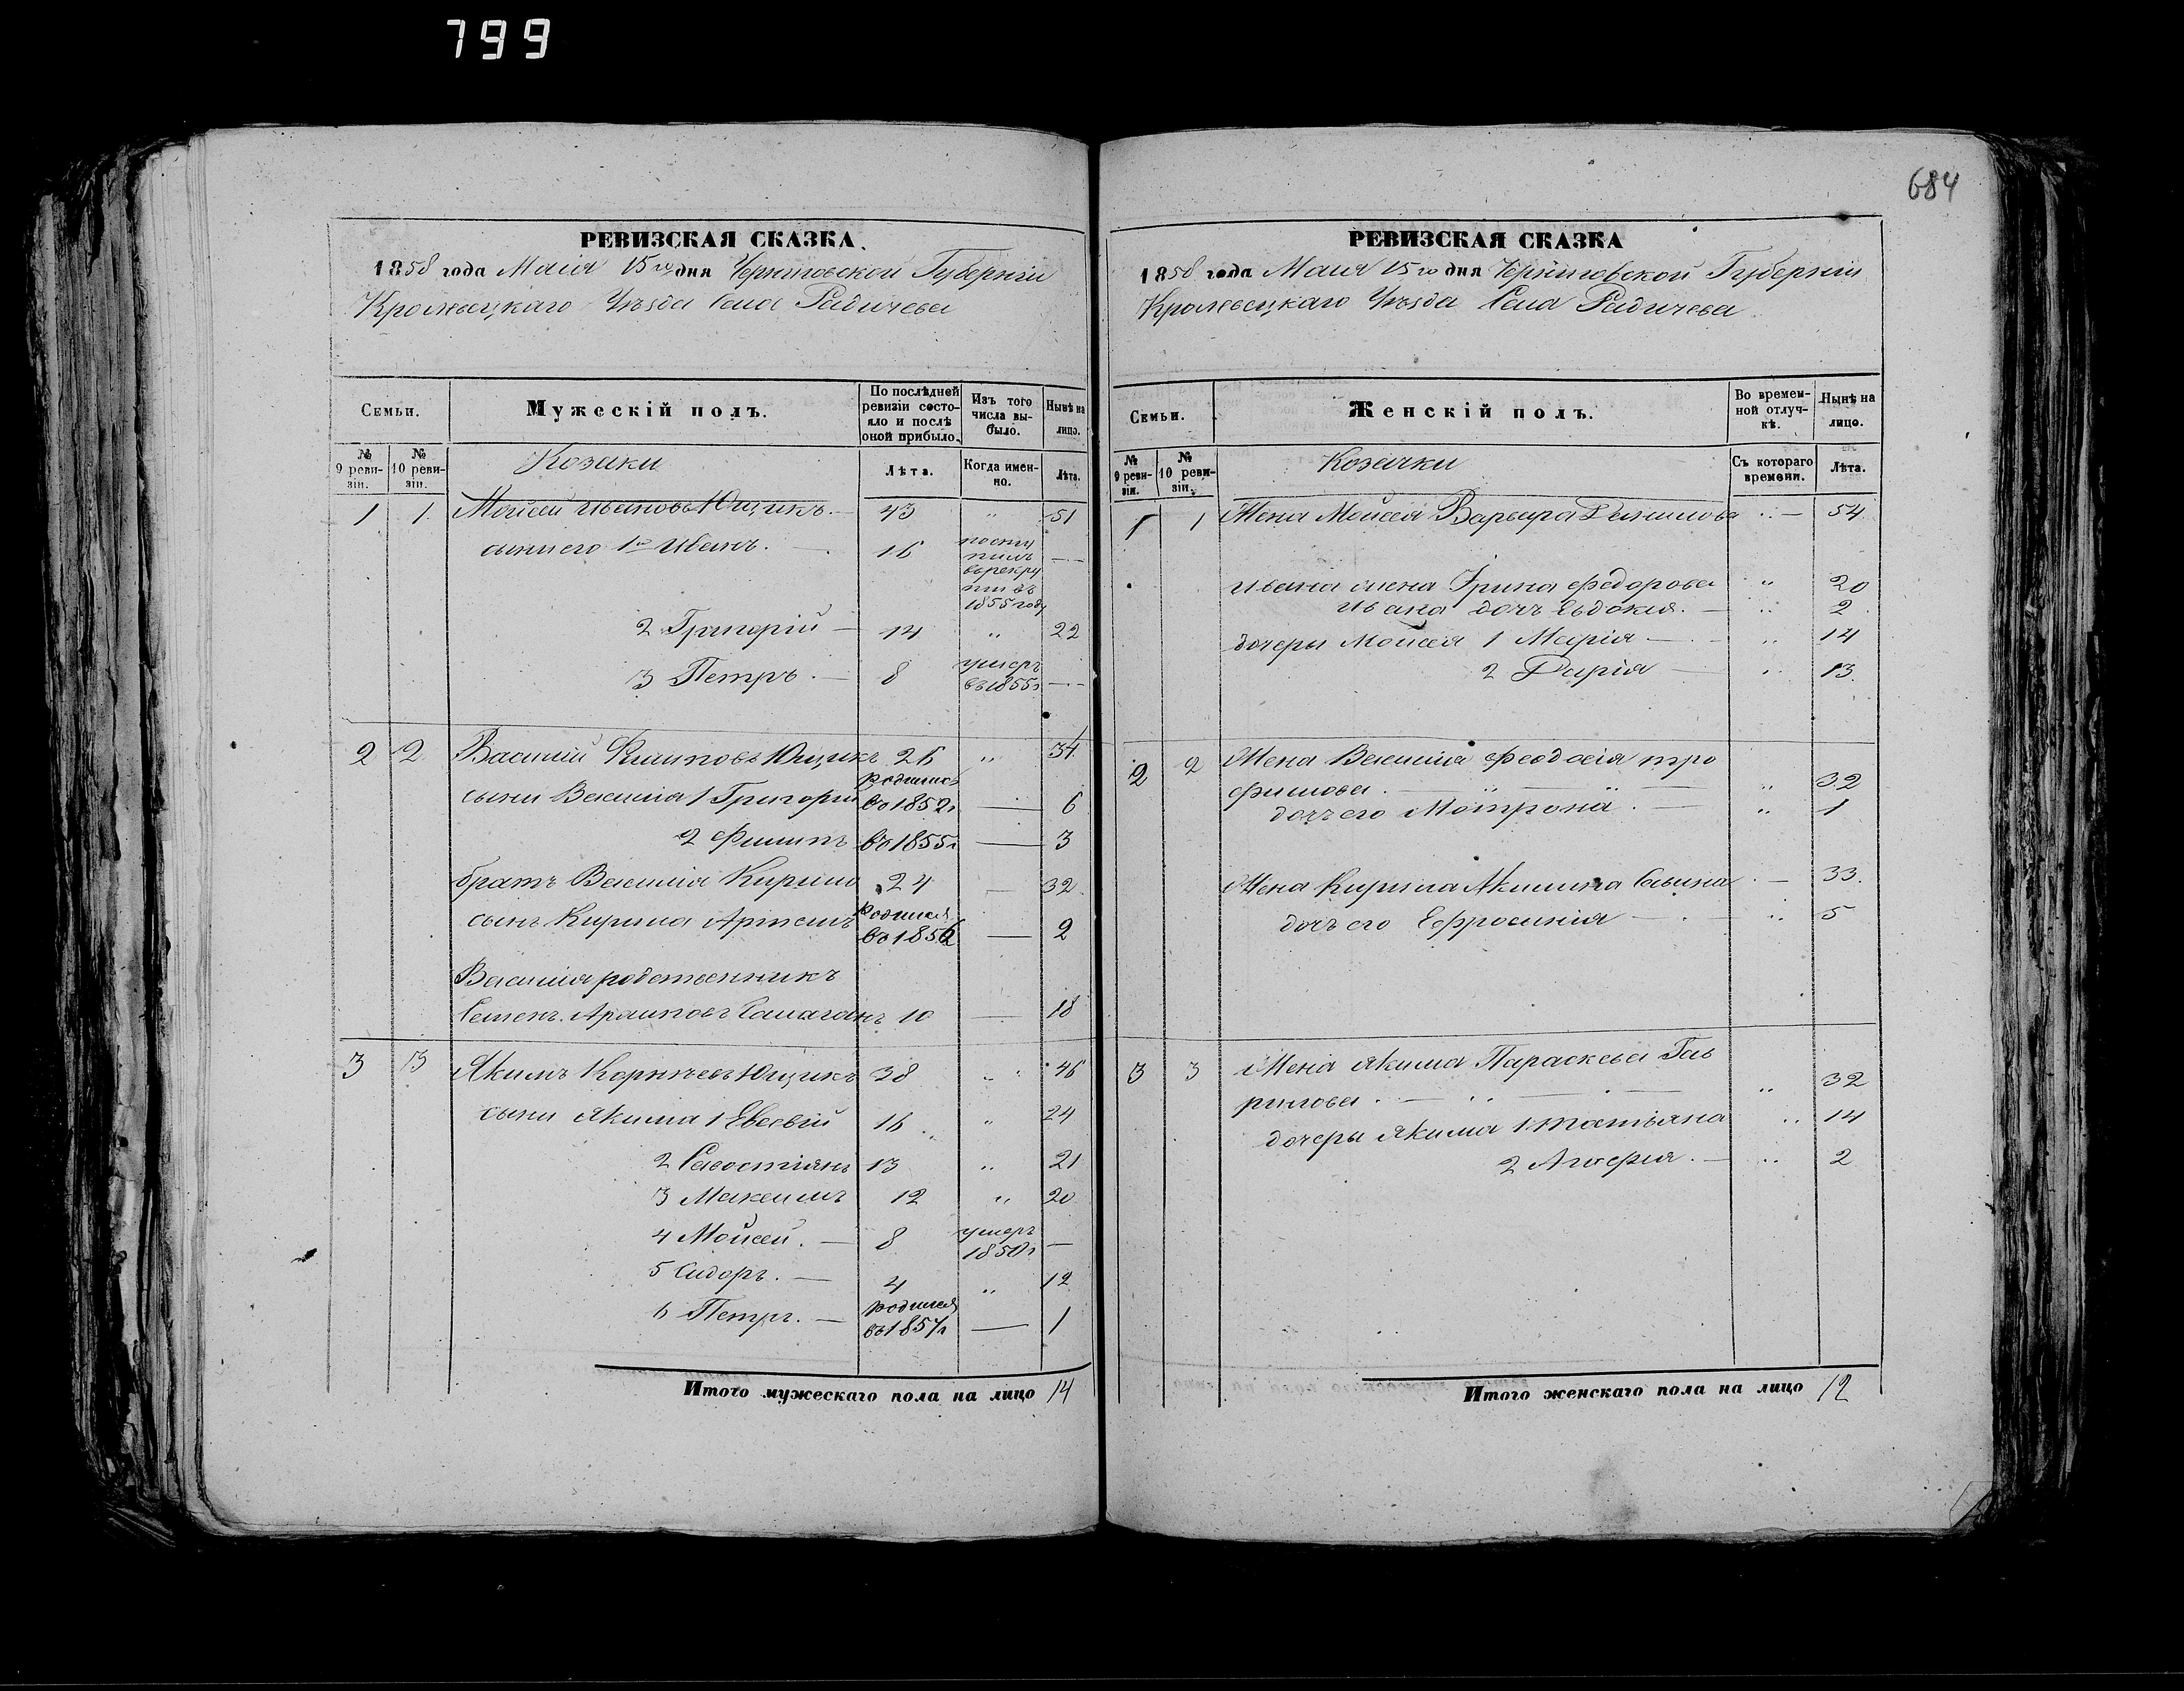 799
684
РЕВИЗСКАЯ СКАЗКА
1858 года Маія 15го дня Черниговской Губерніи
Кролевецкаго Уѣзда Села Радичева
Семьи.
Мужескій полъ.
По послѣдней ревизіи состояло и послѣ оной прибыло.
Изъ того числа выбыло.
Нынѣ на лицо.
№ 9 ревизіи.
№ 10 ревизіи.
Козаки
Лѣта.
Когда именно.
Лѣта.
1 1 Мойсей Ивановъ Ющикъ. 43 " 51
сыни его 1й Иванъ. 16 поступилъ въ рекруты въ 1855 году —
2 Григорій 14 " 22
3 Петръ. 8 умеръ въ 1855г —
2 2 Василій Филиповъ Ющикъ 26 " 34
сыни Василия 1 Григорій родились во 1852г — 6
2 Филипъ во 1855г — 3
братъ Василия Кирило 24 — 32
сынъ Кирила Артемъ родился во 1856 — 2
Василия родственникъ
Семенъ Архиповъ 10 — 18
3 3 Якимъ Корнѣевъ Ющикъ 38 " 46
сыни Якима 1 Евсевій 16 " 24
2 Савостіянъ 13 " 21
3 Максимъ 12 " 20
4 Мойсей. 8 умеръ 1850г —
5 Сидоръ. 4 " 12
6 Петръ. родился въ 1857г — 1
Итого мужескаго пола на лицо 14
РЕВИЗСКАЯ СКАЗКА
1858 года Маия 15го дня Черниговской Губерніи
Кролевецкаго Уѣзда Села Радичева
Семьи.
Женскій полъ.
Во временной отлучкѣ.
Нынѣ на лицо.
№ 9 ревизіи.
№ 10 ревизіи.
Козачки
Съ котораго времени.
Лѣта.
1 1 Жена Мойсея Варвара — 54
Ивана жена Ірина Федорова " 20
Ивана дочъ Евдокия. " 2
дочеры Мойсея 1 Марія " 14
2 Дарія " 13
2 2 Жена Василия Феодосія тро
фимова. " 32
дочъ его Мотрона " 1
Жена Кирила Акилина Савина — 33.
дочъ его Ефросинія " 5
3 3 Жена Якима Параскева Гав
рилова " 32
дочеры Якима 1 татьяна " 14
2 Агафия. " 2
Итого женскаго пола на лицо 12